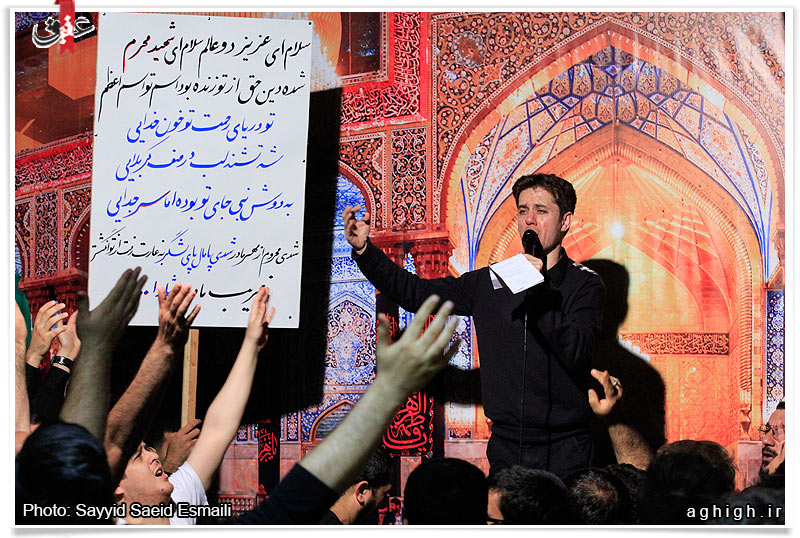 عقیق
سلام ای عزیز دو عالم سلام ای شهید محرم
شده دین حق از تو زنده بود اسم تو اسم اعظم
تو دریای رحمت تو خون خدایی
شه تشنه لب در صف کربلایی
به دوش نبی جای تو بوده اما سر جدایی
شدی محروم از مهر مادر شدی پامال پای لشگر به غارت رفت از تو انگشتر
غریب مادر
Photo: Sayyid Saeid Esmaili
aghigh.ir